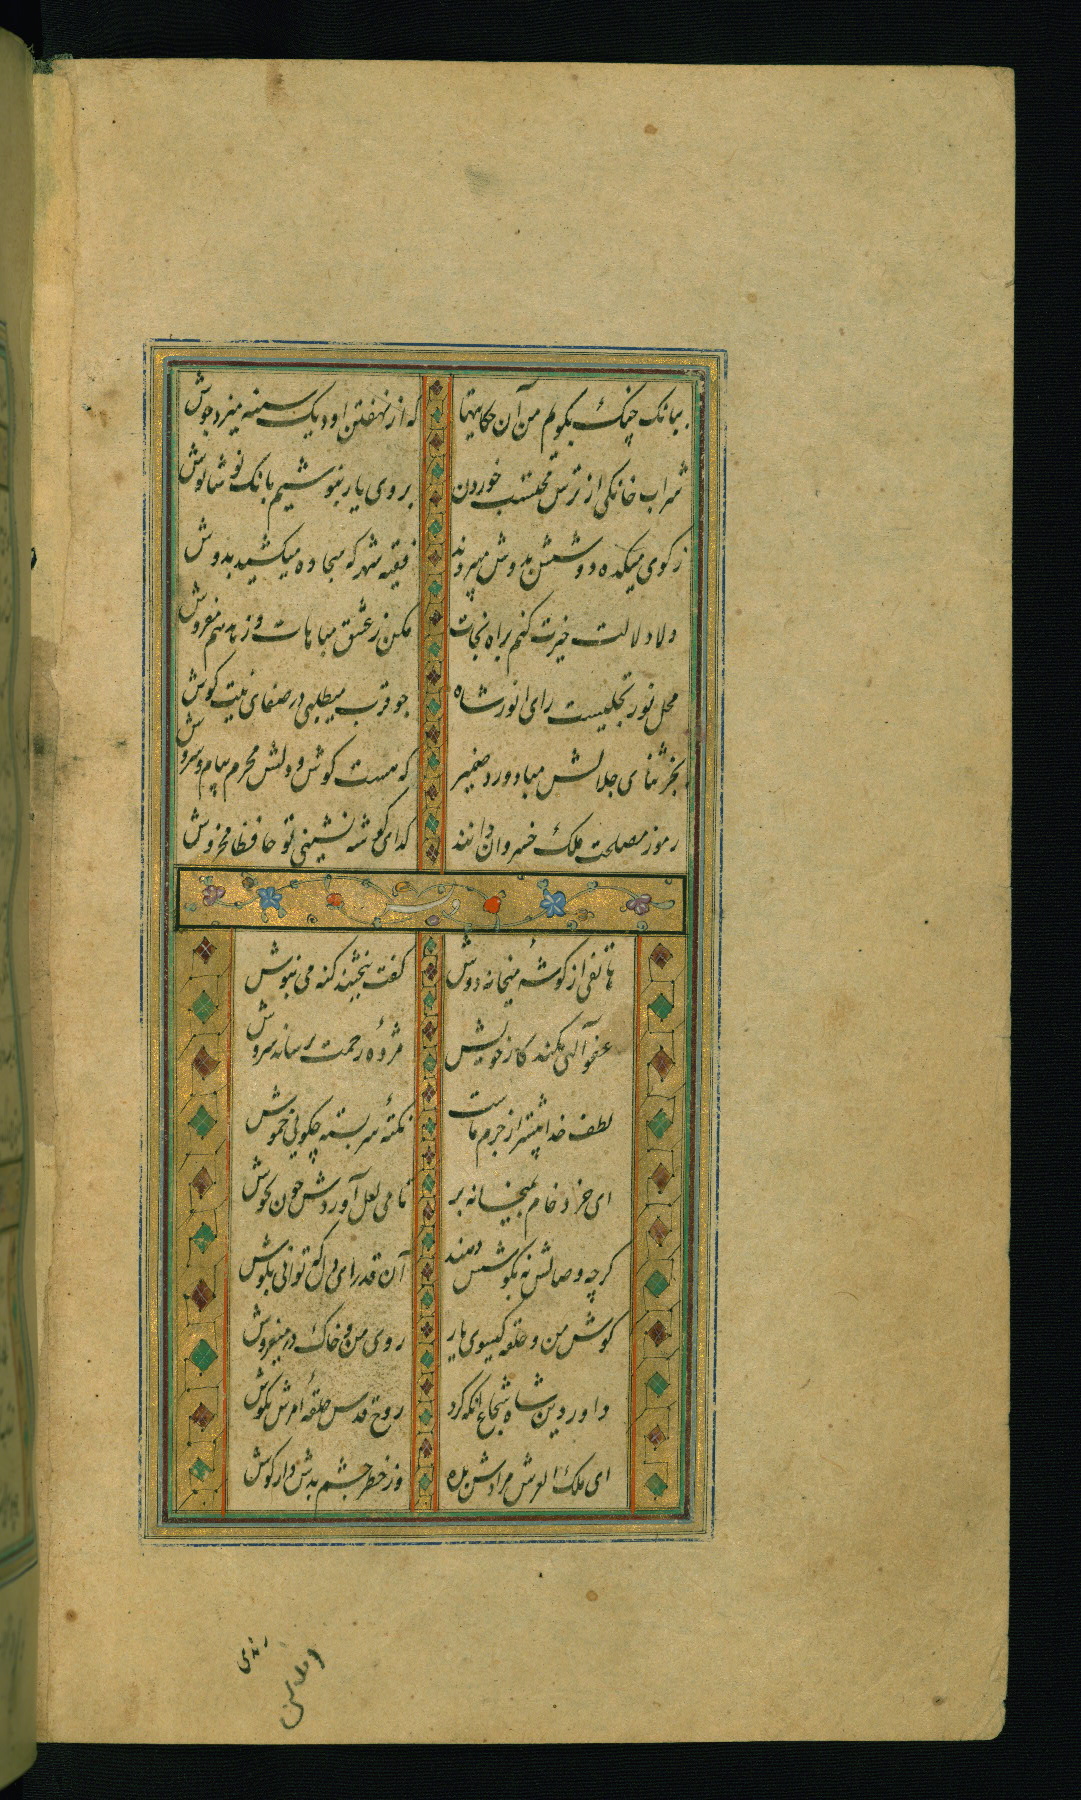 ببانک چنک بکویم من آن حکایتها که از نهفتن او دیک سینه میزد جوش
شراب خانکی از ترس محتسب خوردن بروی یار بنوشیم بانک نوشانوش
ز کوی میکده دوشش بدوش میبردند فقیه شهر که سجاده میکشید بدوش
دلا دلالت خیرت کنم براه نجات مکن ز عشق مباهات و زهد هم مفروش
محل نور تجلیست رای انور شاه جو قرب میطلبی در صفای نیت کوش
بجز ثنای جلالش مباد ورد ضمیر که هست کوش و دلش محرم پیام سروش
رموز مصلحت ملک خسروان دانند کدای کوشه نشینی تو حافظا مخروش
هاتفی از کوشه میخانه دوش کفت ببخشند کنه می بنوش
عفو آلهی بکند کار خویش مژده رحمت برساند سروش
لطف خدا بیشتر از جرم ماست نکتهٔ سربسته چکویی خموش
ای خرد خام بمیخانه بر تا می لعل آوردش خون بجوش
کرچه وصالش نه بکوشش دهند آن قدر ای دل که توانی بکوش
کوش من و حلقه کیسوی یار روی من و خاک در میفروش
داور دین شاه شجاع انکه کرد روح قدس حلقهٔ امرش بکوش
ای ملک العرش مرادش بده وز خطر چشم بدش دار کوش
رندی